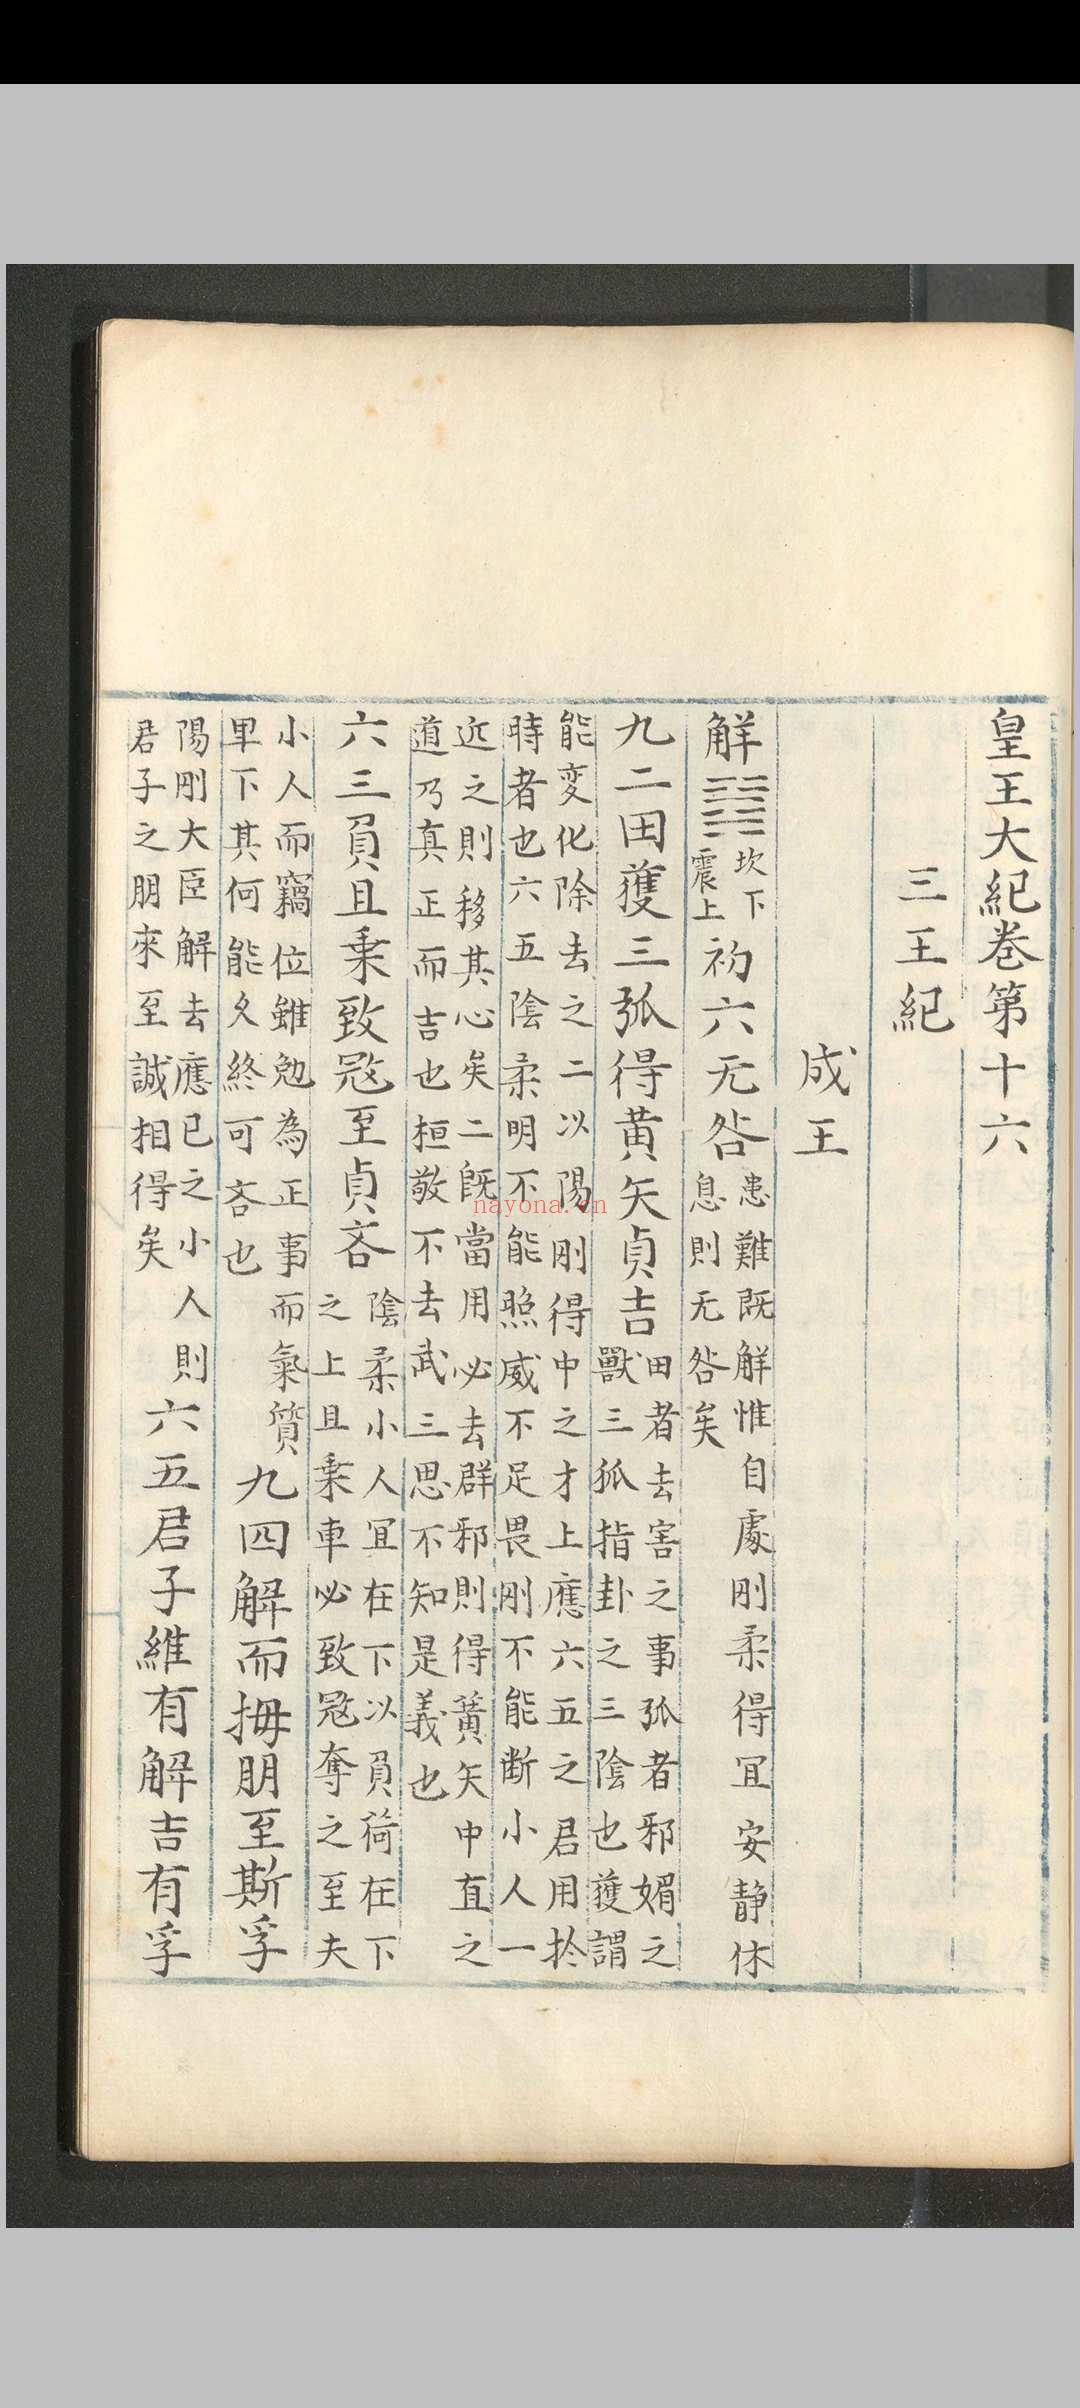 皇王大紀卷第十六
三王紀
成王
解䷧坎下
震上初六无咎患難既解惟自處剛柔得宜安静休
息則无咎矣
九二田獲三狐得黄矢貞吉田者去害之事狐者邪媚之
獸三狐指卦之三陰也獲謂
能変化除去之二以陽剛得中之才上應六五之君用扵
時者也六五陰柔明不能照威不足畏剛不能断小人一
近之則移其心矣二既當用必去群邪則得黄矢中直之
道乃真正而吉也桓敬不去武三思不知是義也
六三負且乗致冦至貞吝陰柔小人宜在下以負荷在下
之上且乗車必致冦奪之至夫
小人而竊位雖勉為正事而氣質
卑下其何能久終可吝也九四解而拇朋至斯孚
陽剛大臣解去應已之小人則
君子之朋來至誠相得矣六五君子維有解吉有孚
nayona.vn